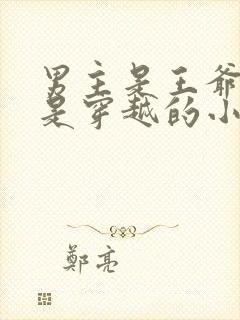 男主是王爷
是穿越的小
鄭亮